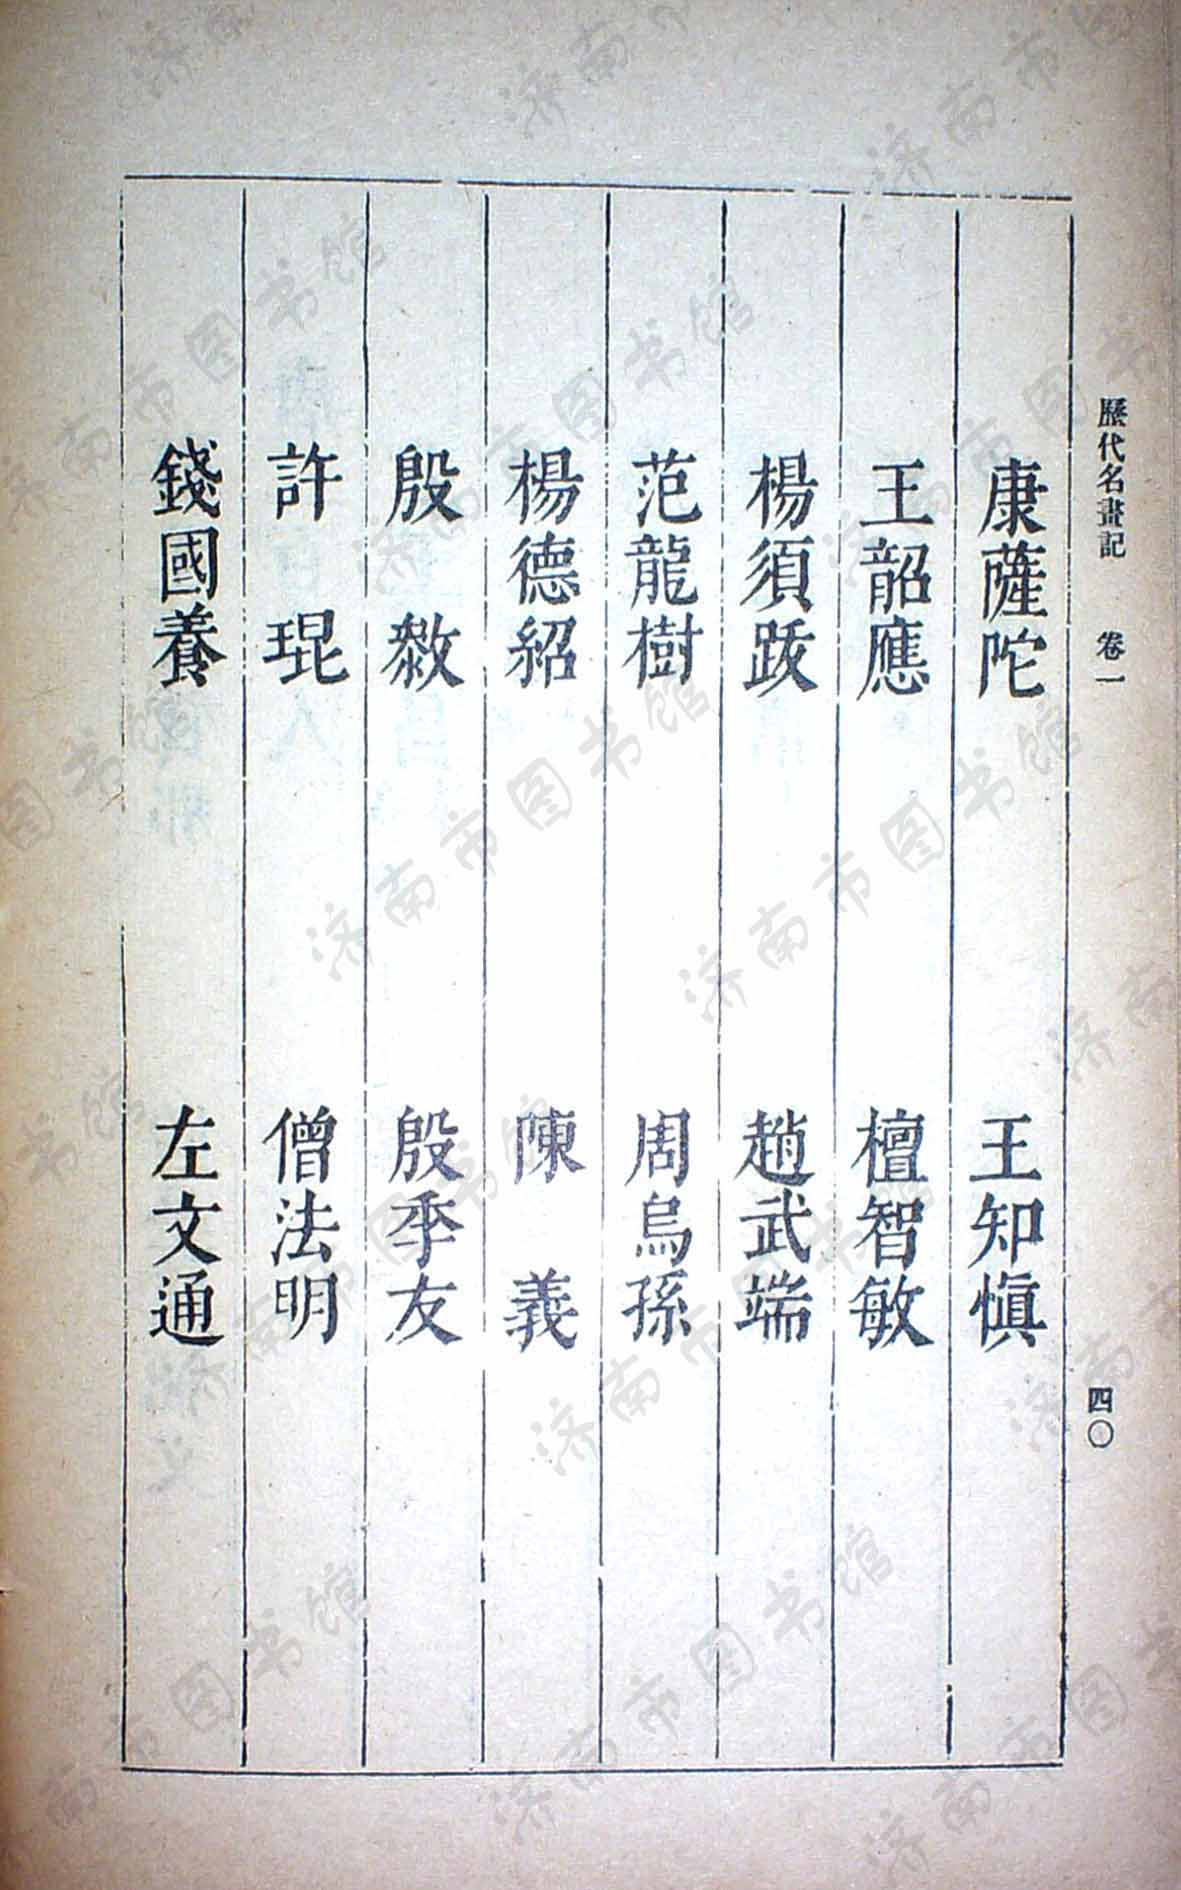 歷代名畫記　卷一
四〇
康薩陀　王知愼
王韶應　檀智敏
楊須跋　趙武端
范龍樹　周烏孫
楊德紹　陳義
殷𢾾　殷季友
許琨　僧法明
錢國養　左文通
济南市图书馆